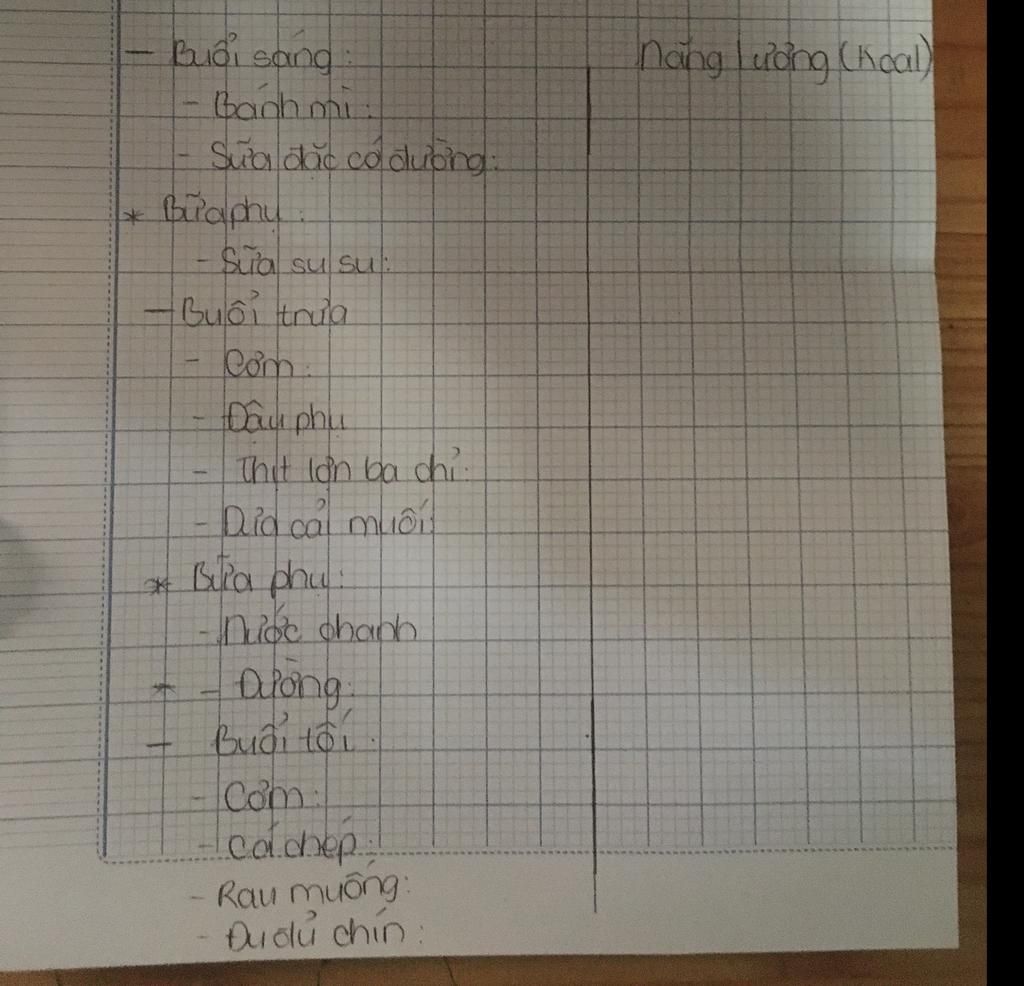 - Buổi sáng: Năng lượng (Kcal)
- Bánh mì:
- Sữa đặc có đường:
* Bữa phụ:
- Sữa su su:
- Buổi trưa
- Cơm:
- Đậu phụ
- Thịt lợn ba chỉ:
- Dưa cải muối:
* Bữa phụ:
- Nước chanh
+ - Đường:
- Buổi tối:
- Cơm:
- Cá chép:
- Rau muống:
- Đu đủ chín: